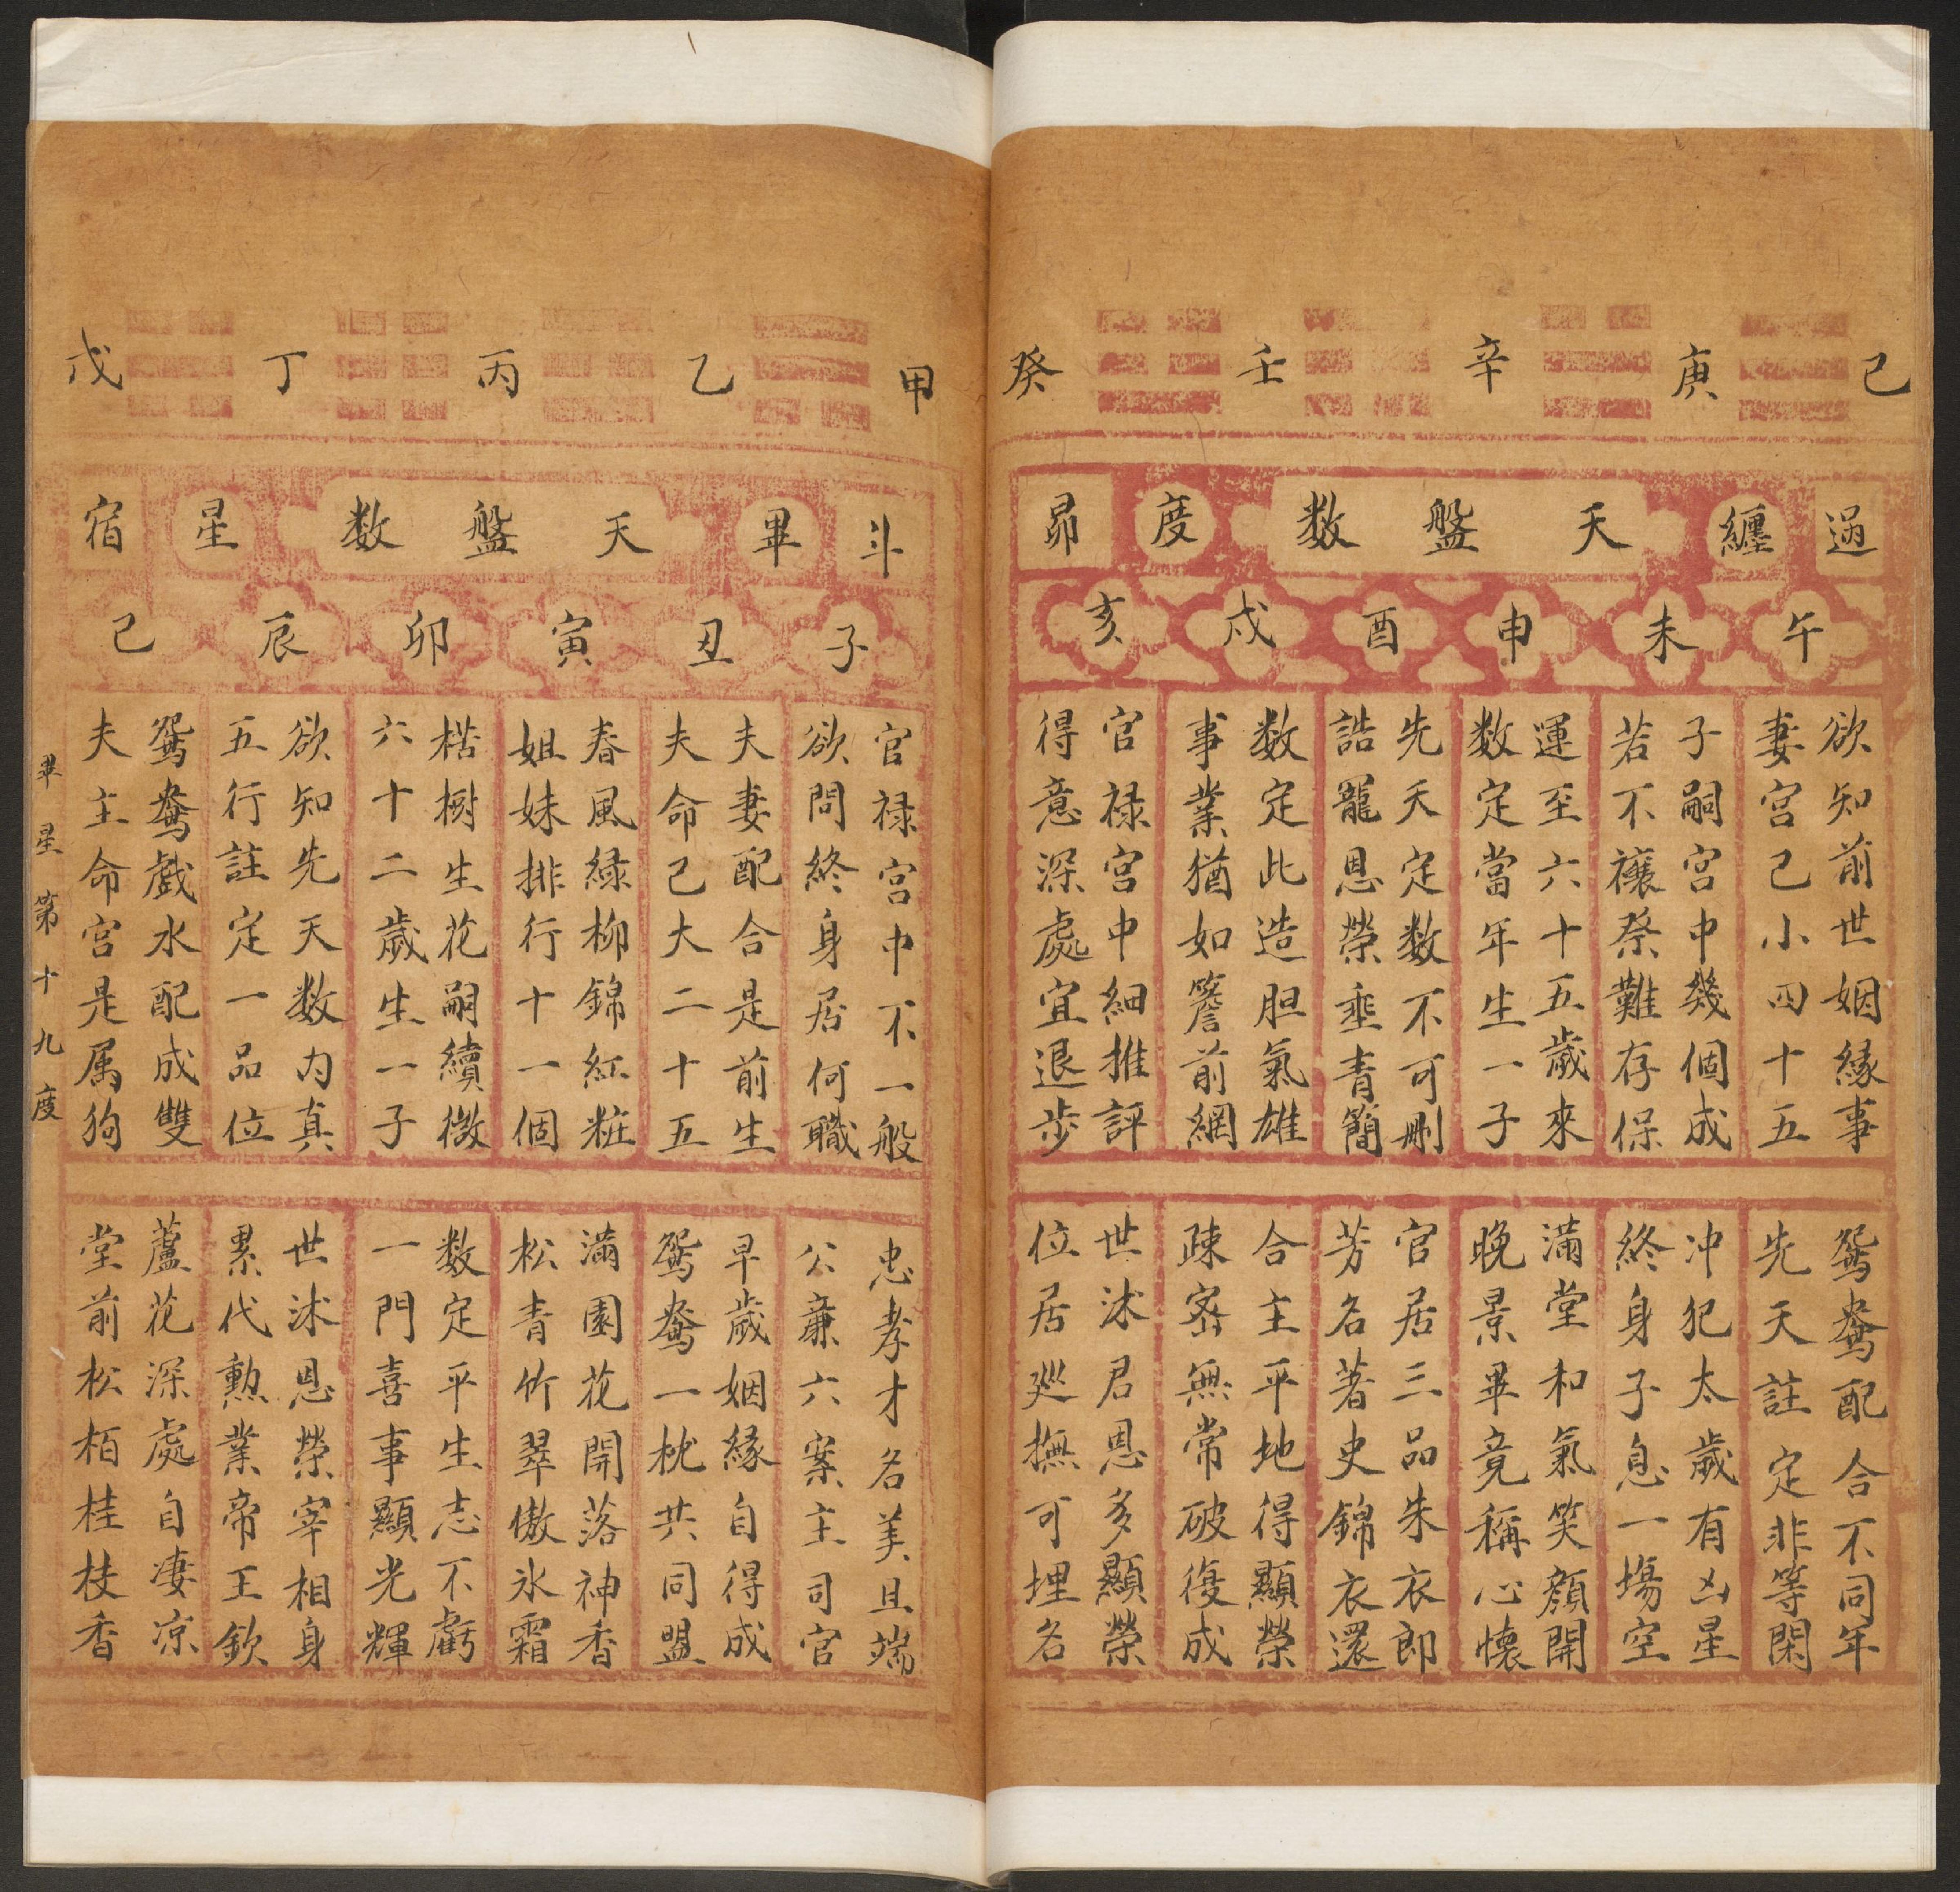 己 庚 辛 壬 癸
過 纏 天盤数 度 昴
午 未 申 酉 戌 亥
欲知前世姻緣事
妻宮己小四十五
子嗣宮中幾個成
若不禳祭難存保
運至六十五歲來
数定當年生一子
先天定数不可刪
誥罷恩榮垂青簡
数定此造胆氣雄
事業猶如簷前網
官禄宮中細推評
得意深處宜退步
鴛鴦配合不同年
先天註定非等閑
冲犯太歲有凶星
終身子息一塲空
滿堂和氣笑顏開
晚景畢竟稱心懷
官居三品朱衣郎
芳名著史錦衣還
合主平地得顯榮
疎宻無常破復成
世沐君恩多顯榮
位居廵撫可埋名
甲 乙 丙 丁 戊
斗 畢 天盤数 星 宿
子 丑 寅 卯 辰 己
官禄宮中不一般
欲問終身居何職
夫妻配合是前生
夫命己大二十五
春風緑柳錦紅粧
姐妹排行十一個
楛樹生花嗣續微
六十二歲生一子
欲知先天数内真
五行註定一品位
鴛鴦戲水配成雙
夫主命宮是属狗
忠孝才名美且端
公廉六案主司官
早歲姻緣自得成
鴛鴦一枕共同盟
滿園花開落神香
松青竹翠傲氷霜
数定平生志不虧
一門喜事顯光輝
世沐恩榮宰相身
累代勲業帝王欽
蘆花深處自凄凉
堂前松栢桂枝香
畢星第十九度